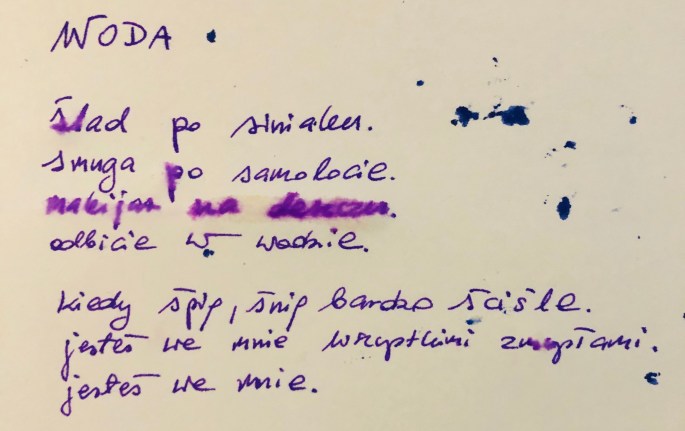 WODA
ślad po siniaku.
smuga po samolocie.
makijaż na deszczu.
odbicie w wodzie.
kiedy śpię, śnię bardzo ściśle.
jesteś we mnie wszystkimi zmysłami.
jesteś we mnie.